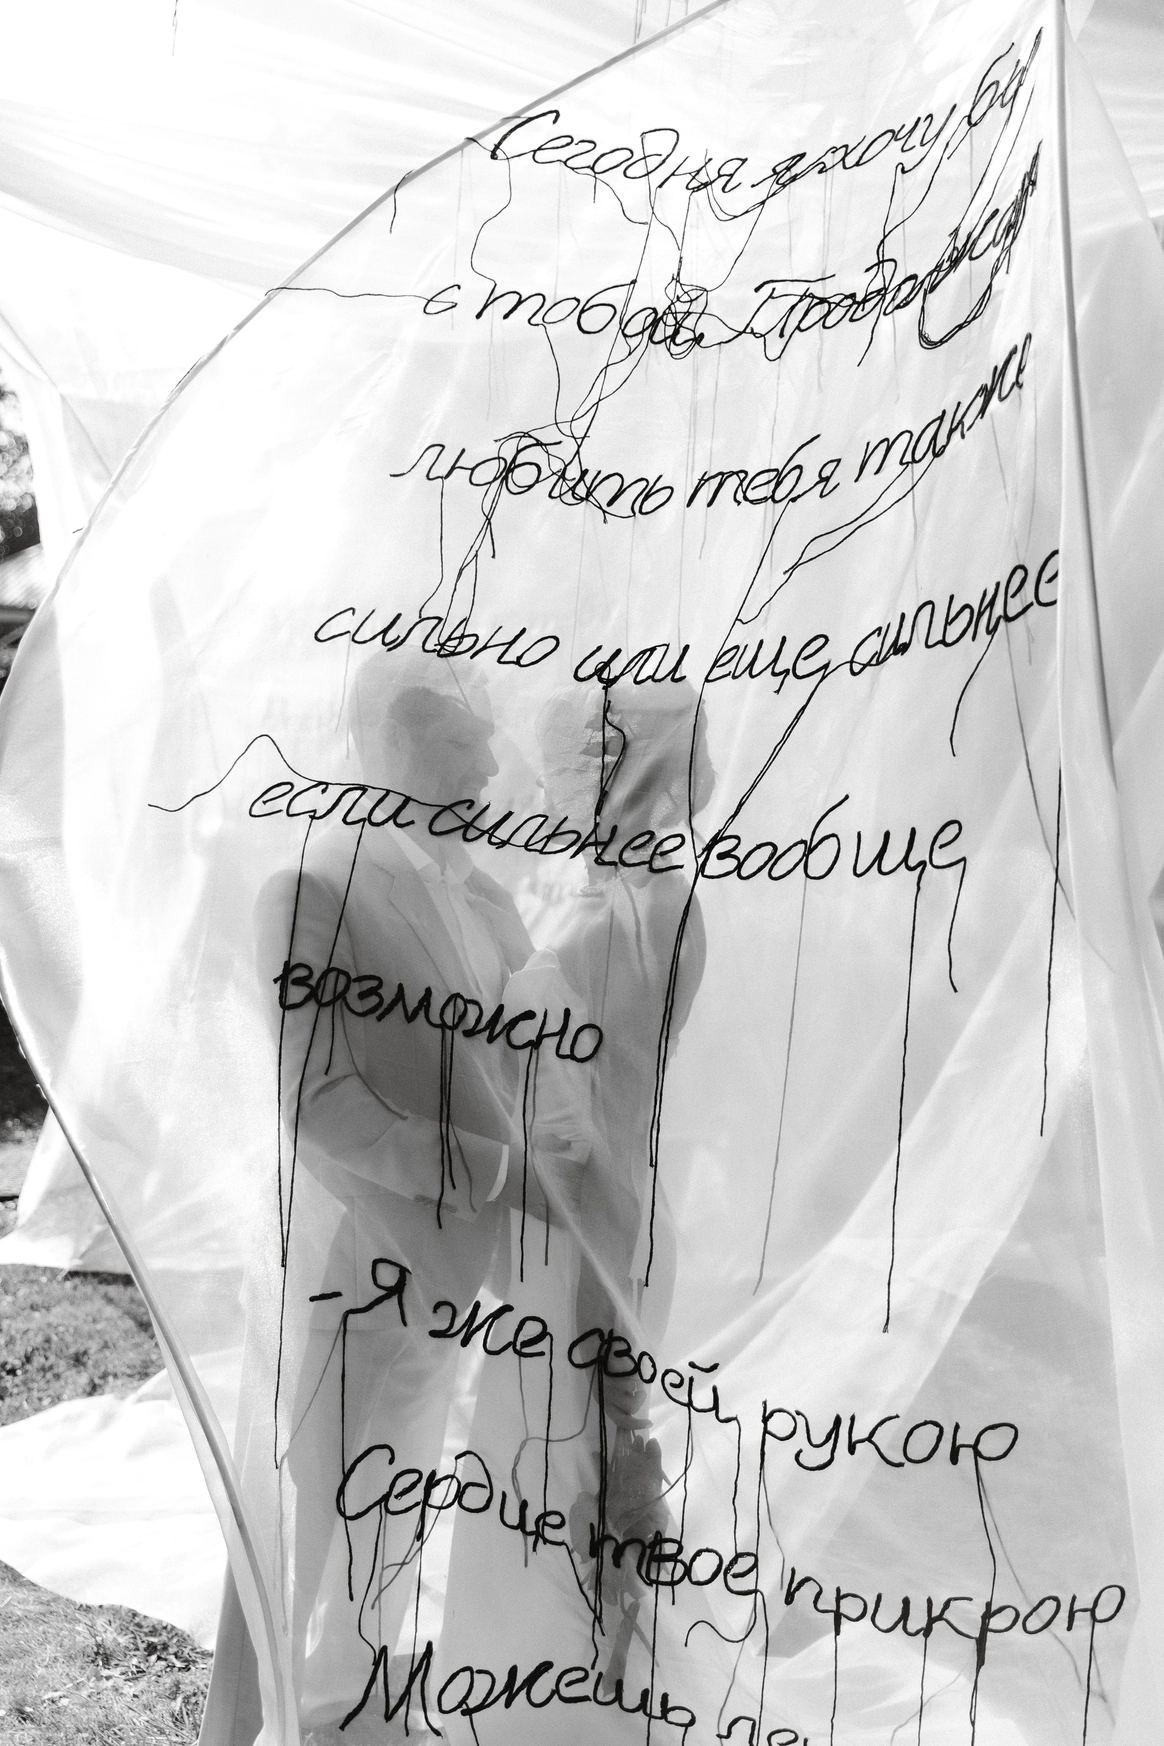 Сегодня я хочу бы
с тобой. Продолжаю
любить тебя также
сильно или еще сильнее
если сильнее вообще
возможно
- Я же своей рукою
Сердце твое прикрою
Можешь ле